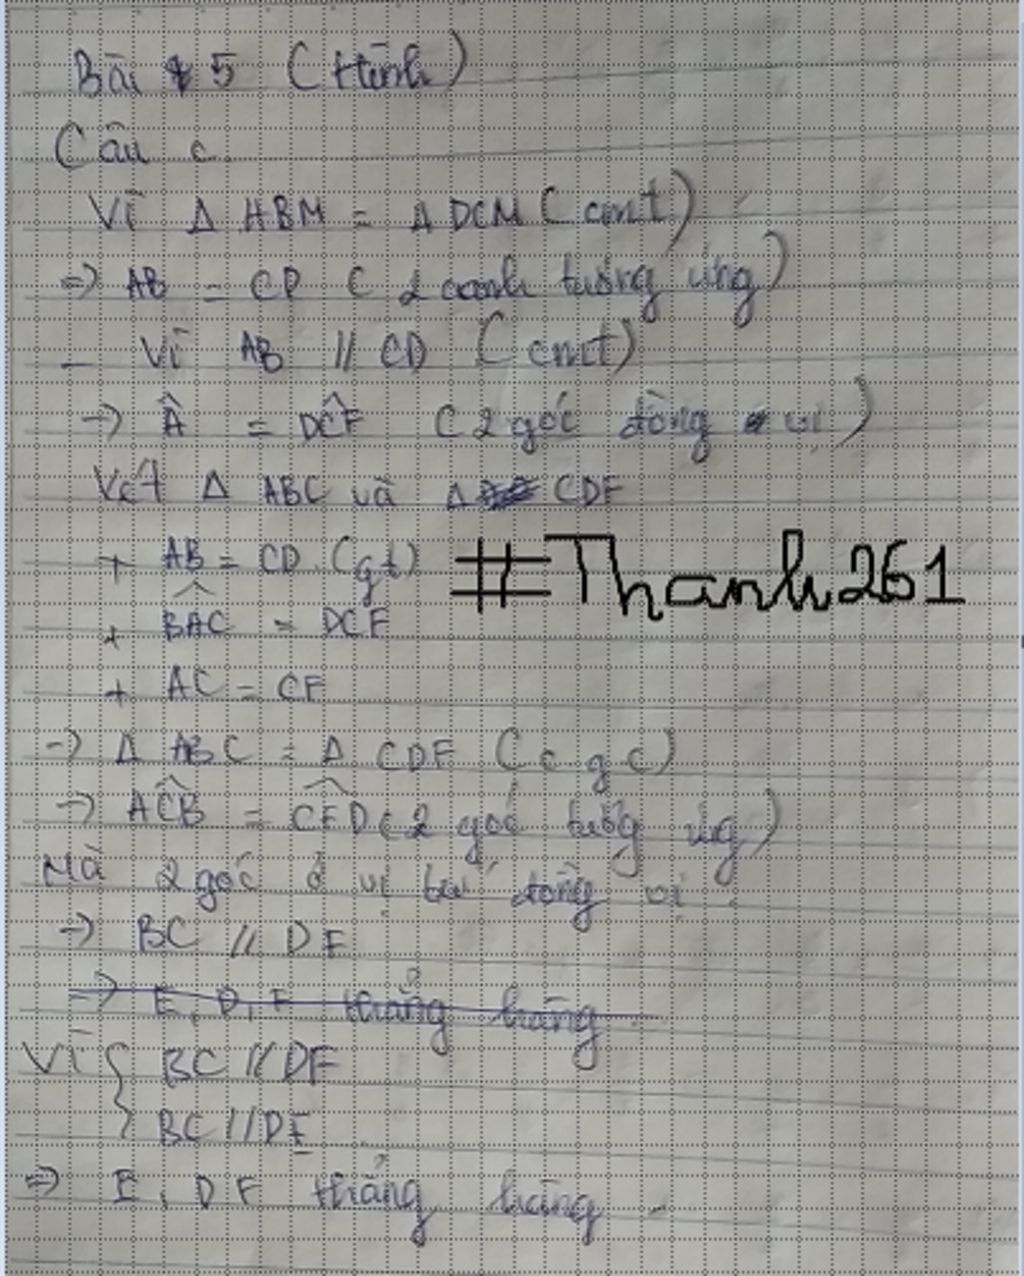 Bài 5 (Hình)
Câu c.
Vì Δ ABM = Δ DCM (cmt)
=> AB = CD ( 2 cạnh tương ứng)
- Vì AB // CD (cmt)
=> Â = DĈF ( 2 góc đồng vị )
Xét Δ ABC và Δ CDF
+ AB = CD (gt)
#Thanh261
+ BÂC = DCF
+ AC = CF
=> Δ ABC = Δ CDF (c g c)
=> AĈB = CFD ( 2 góc tương ứng)
Mà 2 góc ở vị trí đồng vị
=> BC // DF
=> E, D, F thẳng hàng
Vì { BC // DF
BC // DE
=> E, D F thẳng hàng